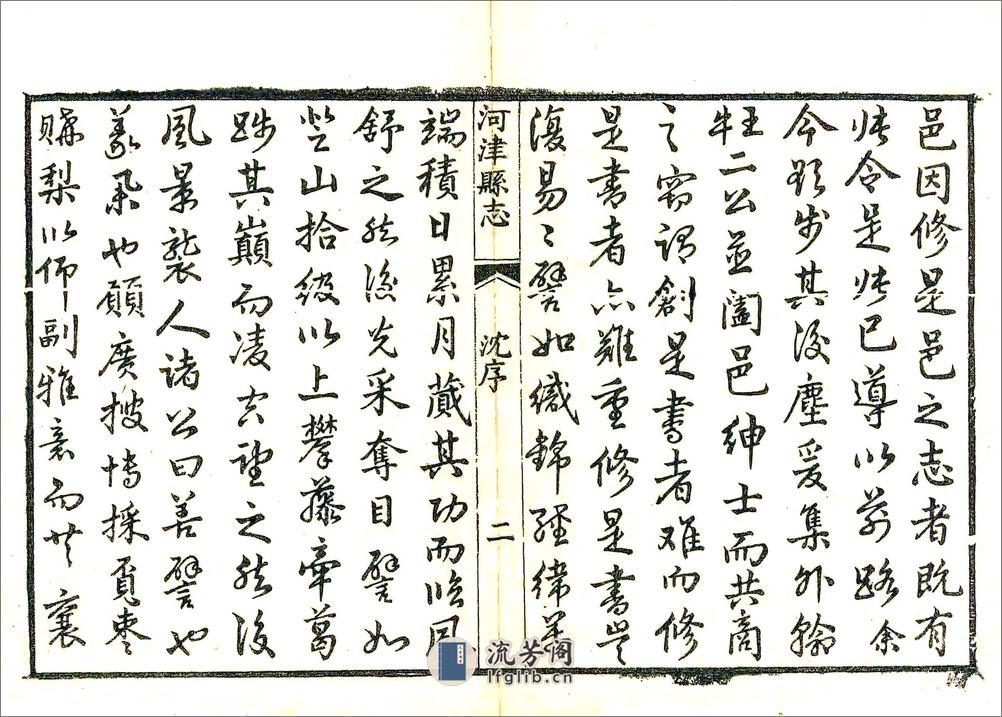 邑因修是邑之志者既有
張令是張已導以前路余
今步其後塵爰集外翰
二公並闔邑紳士而共商
之窃謂創是書者难而修
是書者亦難重修是書豈
復易〻譬如織錦經緯萬
河津縣志 沈序 二
端積日累月蕆其功而臨風
舒之然後光采奪目譬如
登山拾級以上攀藤牽葛
躋其巔而凌空望之然後
風景襲人諸公曰善譬也
義也願廣搜博採棗
購梨以副雅意而共襄
流芳阁
lfglib.cn